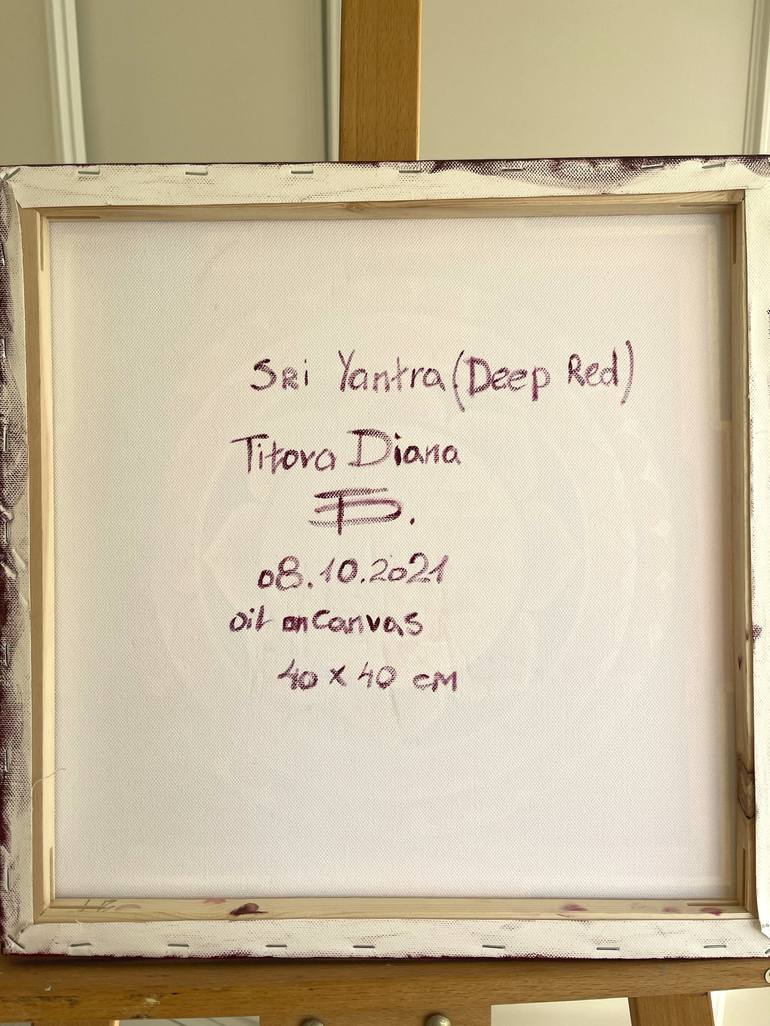 Sri Yantra (Deep Red)
Titova Diana
TD.
08.10.2021
oil on canvas
40 x 40 cm